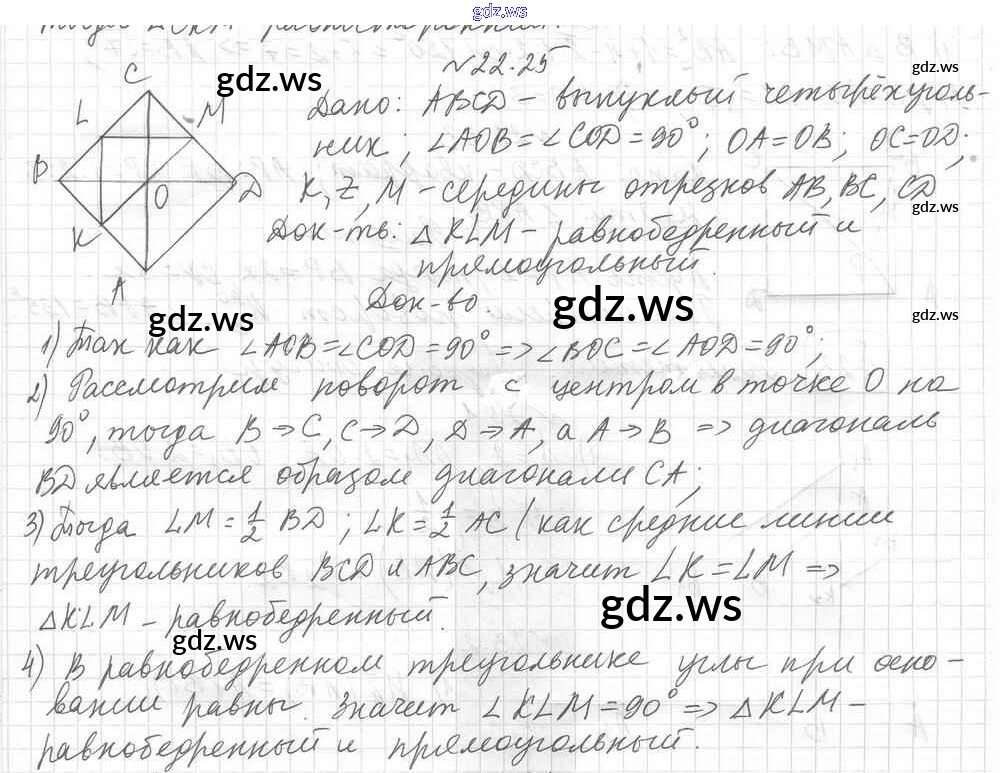 gdz.ws
№22.25
gdz.ws
gdz.ws
C
L
M
B
D
O
K
A
Дано: ABCD – выпуклый четырёхуголь-
ник, ∠AOB = ∠COD = 90°; OA = OB; OC = OD;
K, Z, M – середины отрезков AB, BC, CD
gdz.ws
Док-ть: △ KLM – равнобедренный и
прямоугольный.
Док-во.
gdz.ws
gdz.ws
gdz.ws
1) Так как ∠AOB = ∠COD = 90° => ∠BOC = ∠AOD = 90°;
2) Рассмотрим поворот с центром в точке O на
90°, тогда B → C, C → D, D → A, а A → B => диагональ
BD является образом диагонали CA;
3) Тогда LM = 1/2 BD; LK = 1/2 AC (как средние линии
треугольников BCD и ABC, значит LK = LM =>
△KLM – равнобедренный.
gdz.ws
gdz.ws
4) В равнобедренном треугольнике углы при осно-
вании равны. Значит ∠KLM = 90° => △KLM –
равнобедренный и прямоугольный.